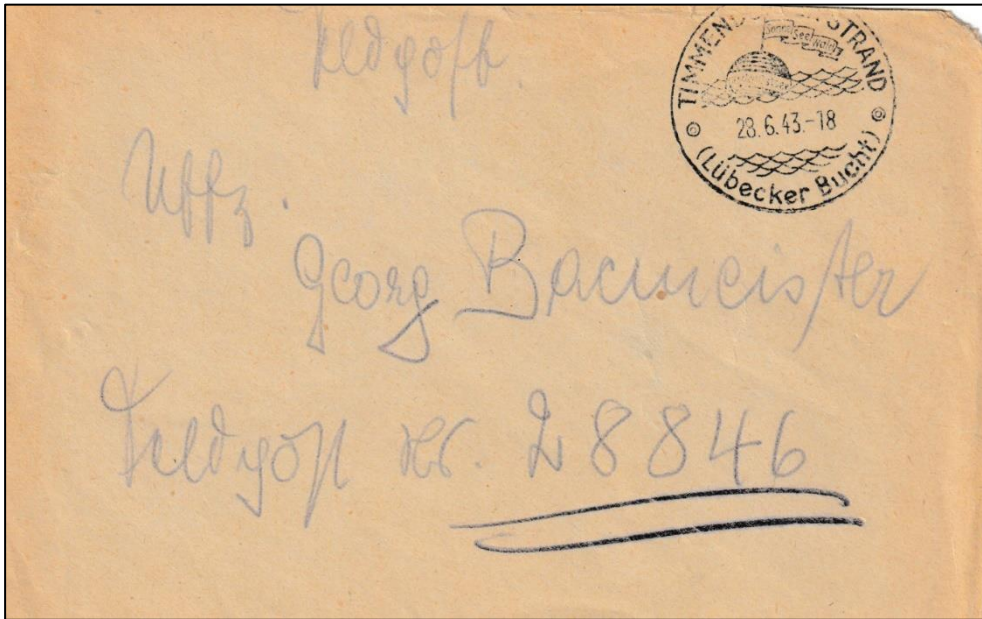 Feldpost
TIMMENDORFER STRAND
Sonne See Wald
28.6.43.-18
(Lübecker Bucht)
Uffz.
Georg Bacmeister
Feldpost Nr. 28846